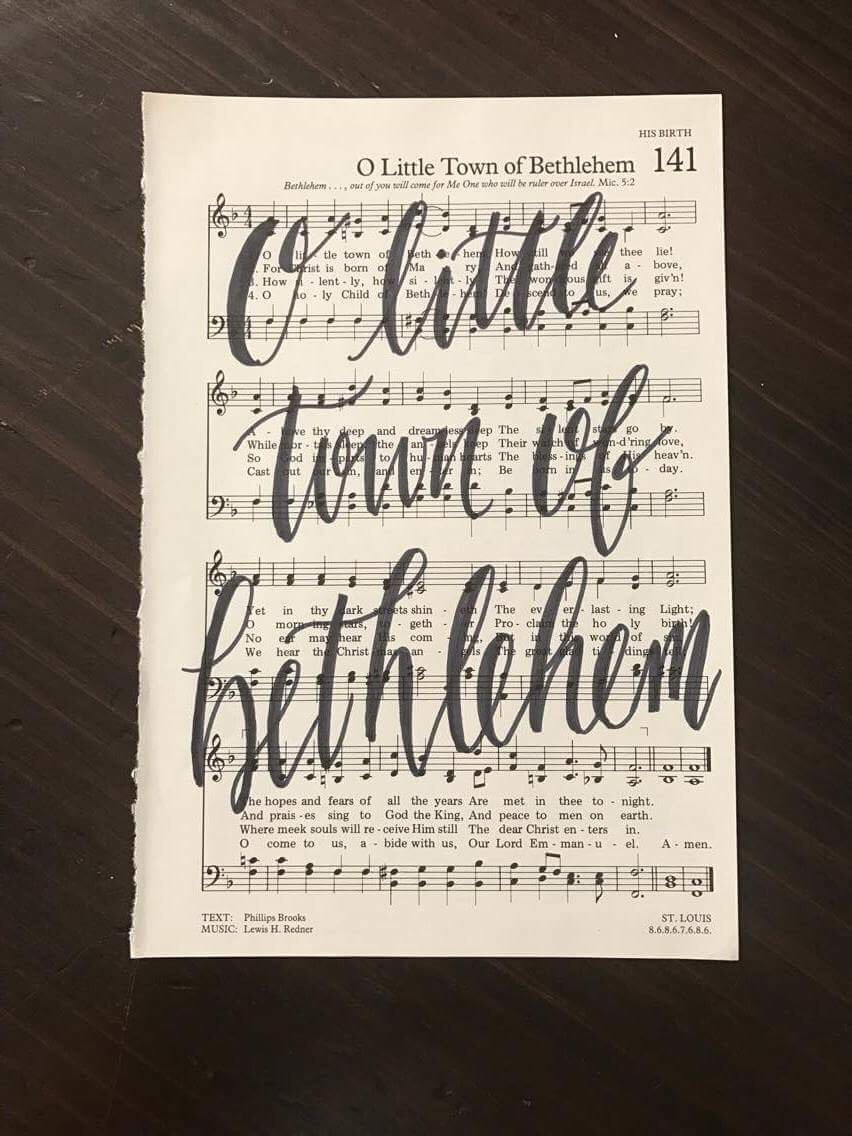 HIS BIRTH
O Little Town of Bethlehem 141
Bethlehem . . . , out of you will come for Me One who will be ruler over Israel. Mic. 5:2
O little
O lit - tle town of Beth - le - hem, How still we see thee lie!
. For Christ is born of Ma - ry And gath - ered a - bove,
3. How si - lent - ly, how si - lent - ly The won - drous gift is giv'n!
4. O ho - ly Child of Beth - le - hem! De - scend to us, we pray;
town of
A - bove thy deep and dreamless sleep The si - lent stars go by.
While mor - tals sleep, the an - gels keep Their watch of won - d'ring love,
So God im - parts to hu - man hearts The bless - ings of His heav'n.
Cast out our sin, and en - ter in; Be born in us to - day.
bethlehem
Yet in thy dark streets shin - eth The ev - er - last - ing Light;
O morn - ing stars, to - geth - er Pro - claim the ho - ly birth!
No ear may hear His com - ing, But in this world of sin,
We hear the Christ - mas an - gels The great glad ti - dings tell;
The hopes and fears of all the years Are met in thee to - night.
And prais - es sing to God the King, And peace to men on earth.
Where meek souls will re - ceive Him still The dear Christ en - ters in.
O come to us, a - bide with us, Our Lord Em - man - u - el. A - men.
TEXT: Phillips Brooks
MUSIC: Lewis H. Redner
ST. LOUIS
8.6.8.6.7.6.8.6.